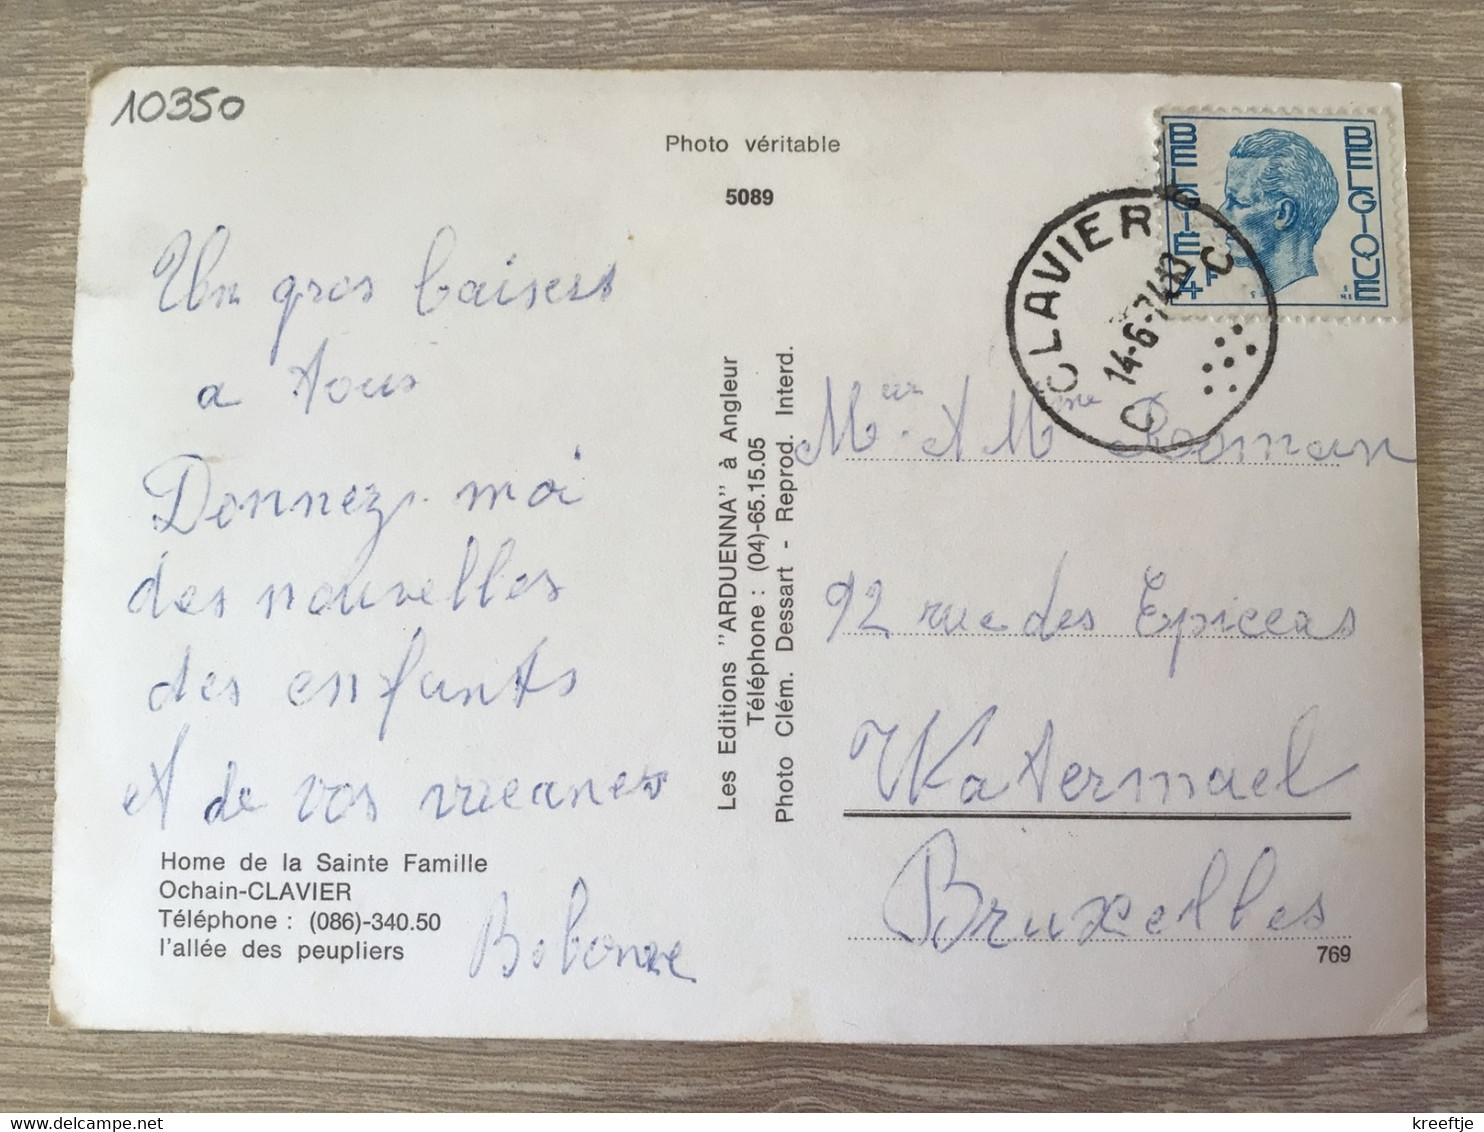 10350
Photo véritable
5089
BELGIE
BELGIQUE
4F
CLAVIER
14-6-74
C C
Un gros baisers
a tous
Donnez moi
des nouvelles
des enfants
et de vos vacances
Bobonne
Home de la Sainte Famille
Ochain-CLAVIER
Téléphone : (086)-340.50
l'allée des peupliers
Les Editions "ARDUENNA" à Angleur
Téléphone : (04)-65.15.05
Photo Clém. Dessart - Reprod. Interd.
Mr et Mme Rooman
92 rue des Epiceas
Watermael
Bruxelles
769
kreeftje